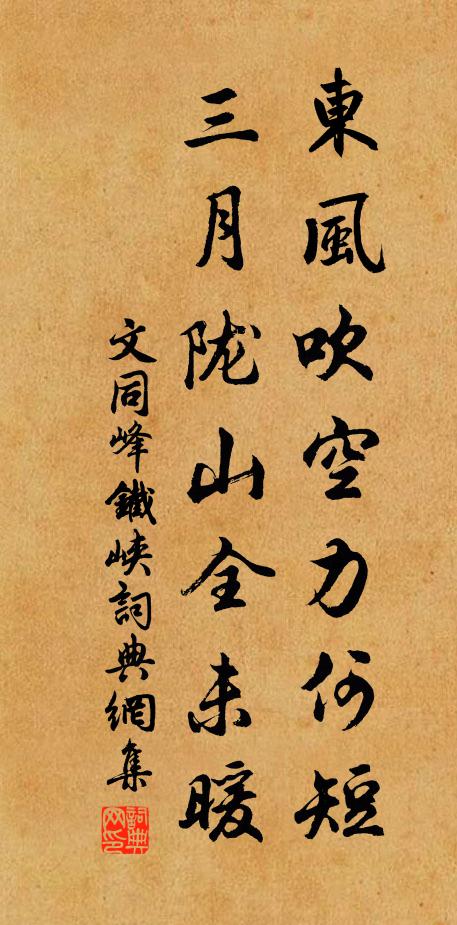 東風吹空力何短
三月陇山全未暖
文同峰鐵峡詞典網集
詞典网印